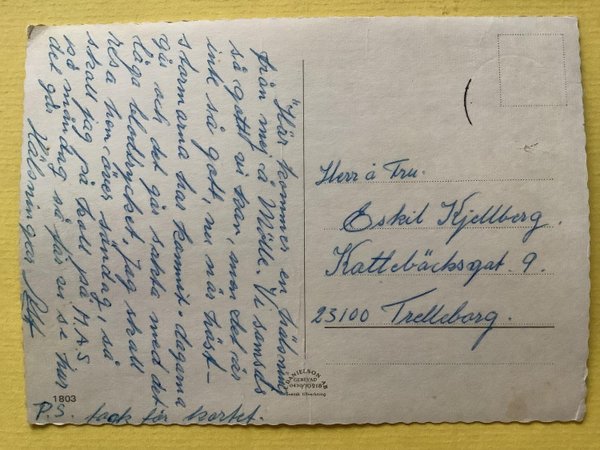 "Här kommer en hälsning
från mej å Mölle. Vi samsås
så gott vi kan, men det är
inte så gott, nu när höst-
stormarna har kommit. dagarna
gå och det går sakta med det
låga blodtrycket jag skall
resa hon över söndag, så
skall jag på koll på M.A.S
på måndag så får vi se hur
det går
Hälsningar
P.S. tack för kortet.
Herr å Fru.
Eskil Kjellberg.
Kattebäcksgat. 9.
23100 Trelleborg.
1803
DANIELSON AB
GENEVAD
0430/70918
Svensk tillverkning